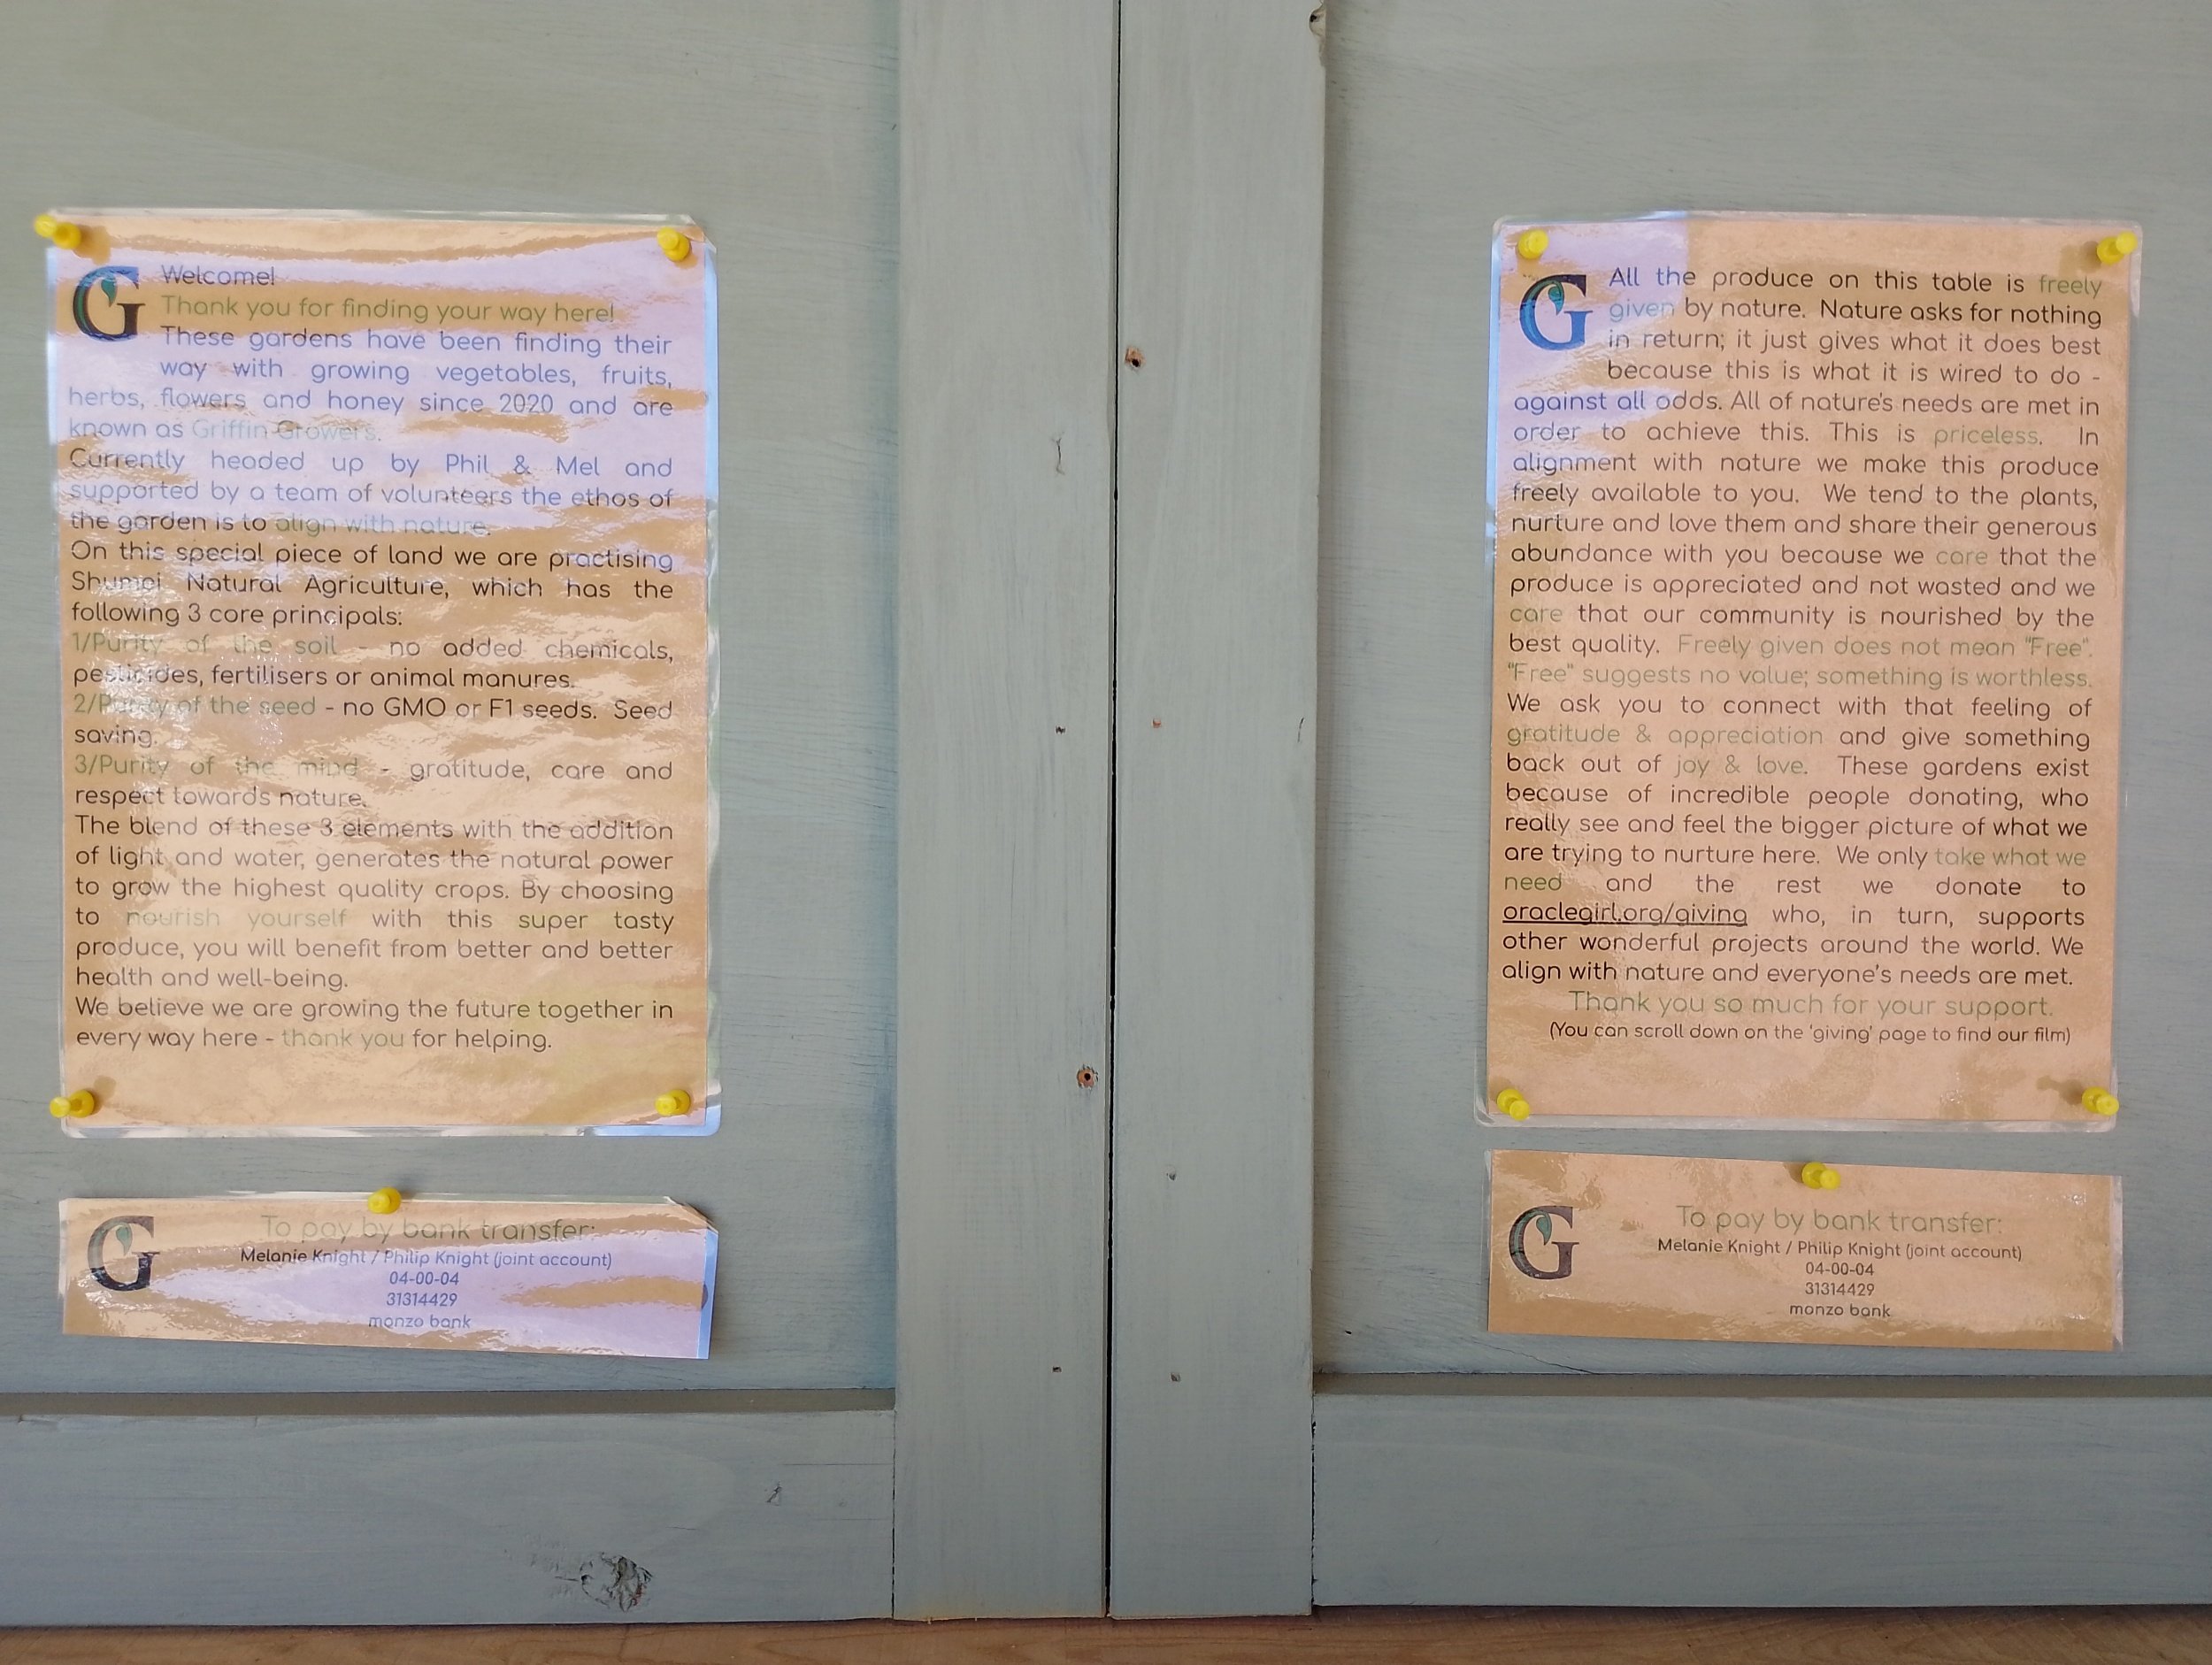 Welcome!
Thank you for finding your way here!
These gardens have been finding their
way with growing vegetables, fruits,
herbs, flowers and honey since 2020 and are
known as Griffin Growers.
Currently headed up by Phil & Mel and
supported by a team of volunteers the ethos of
the garden is to align with nature.
On this special piece of land we are practising
Shumei Natural Agriculture, which has the
following 3 core principals:
1/Purity of the soil - no added chemicals,
pesticides, fertilisers or animal manures.
2/Purity of the seed - no GMO or F1 seeds. Seed
saving.
3/Purity of the mind - gratitude, care and
respect towards nature.
The blend of these 3 elements with the addition
of light and water, generates the natural power
to grow the highest quality crops. By choosing
to nourish yourself with this super tasty
produce, you will benefit from better and better
health and well-being.
We believe we are growing the future together in
every way here - thank you for helping.
To pay by bank transfer:
Melanie Knight / Philip Knight (joint account)
04-00-04
31314429
monzo bank
All the produce on this table is freely
given by nature. Nature asks for nothing
in return; it just gives what it does best
because this is what it is wired to do -
against all odds. All of nature's needs are met in
order to achieve this. This is priceless. In
alignment with nature we make this produce
freely available to you. We tend to the plants,
nurture and love them and share their generous
abundance with you because we care that the
produce is appreciated and not wasted and we
care that our community is nourished by the
best quality. Freely given does not mean "Free".
"Free" suggests no value; something is worthless.
We ask you to connect with that feeling of
gratitude & appreciation and give something
back out of joy & love. These gardens exist
because of incredible people donating, who
really see and feel the bigger picture of what we
are trying to nurture here. We only take what we
need and the rest we donate to
oraclegirl.org/giving who, in turn, supports
other wonderful projects around the world. We
align with nature and everyone's needs are met.
Thank you so much for your support.
(You can scroll down on the 'giving' page to find our film)
To pay by bank transfer:
Melanie Knight / Philip Knight (joint account)
04-00-04
31314429
monzo bank